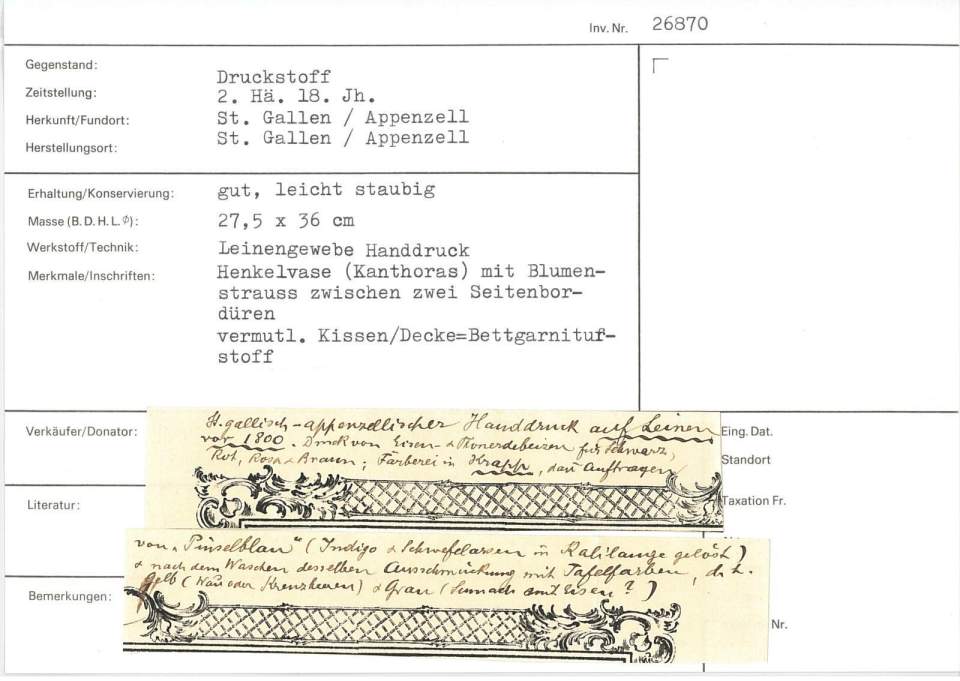 Inv. Nr. 26870
Gegenstand: Druckstoff
Zeitstellung: 2. Hä. 18. Jh.
Herkunft/Fundort: St. Gallen / Appenzell
Herstellungsort: St. Gallen / Appenzell
Erhaltung/Konservierung: gut, leicht staubig
Masse (B. D. H. L. ∅): 27,5 x 36 cm
Werkstoff/Technik: Leinengewebe Handdruck
Merkmale/Inschriften: Henkelvase (Kanthoras) mit Blumen-
strauss zwischen zwei Seitenbor-
düren
vermutl. Kissen/Decke=Bettgarnitur-
stoff
Verkäufer/Donator:
St. gallisch-appenzellischer Handdruck auf Leinen
vor 1800. Druck von Eisen- & Thonerdebeizen für Schwarz,
Rot, Rosa & Braun; Färberei in Krapp, dann Auftragen
Eing. Dat.
Standort
Literatur:
Taxation Fr.
von „Pinselblau" (Indigo & Schwefelarsen in Kalilauge gelöst)
& nach dem Waschen desselben Ausschmückung mit Tafelfarben, d. h.
Gelb (Wau oder Kreuzbeeren) & Grau (Sumach mit Eisen?)
Bemerkungen:
Nr.